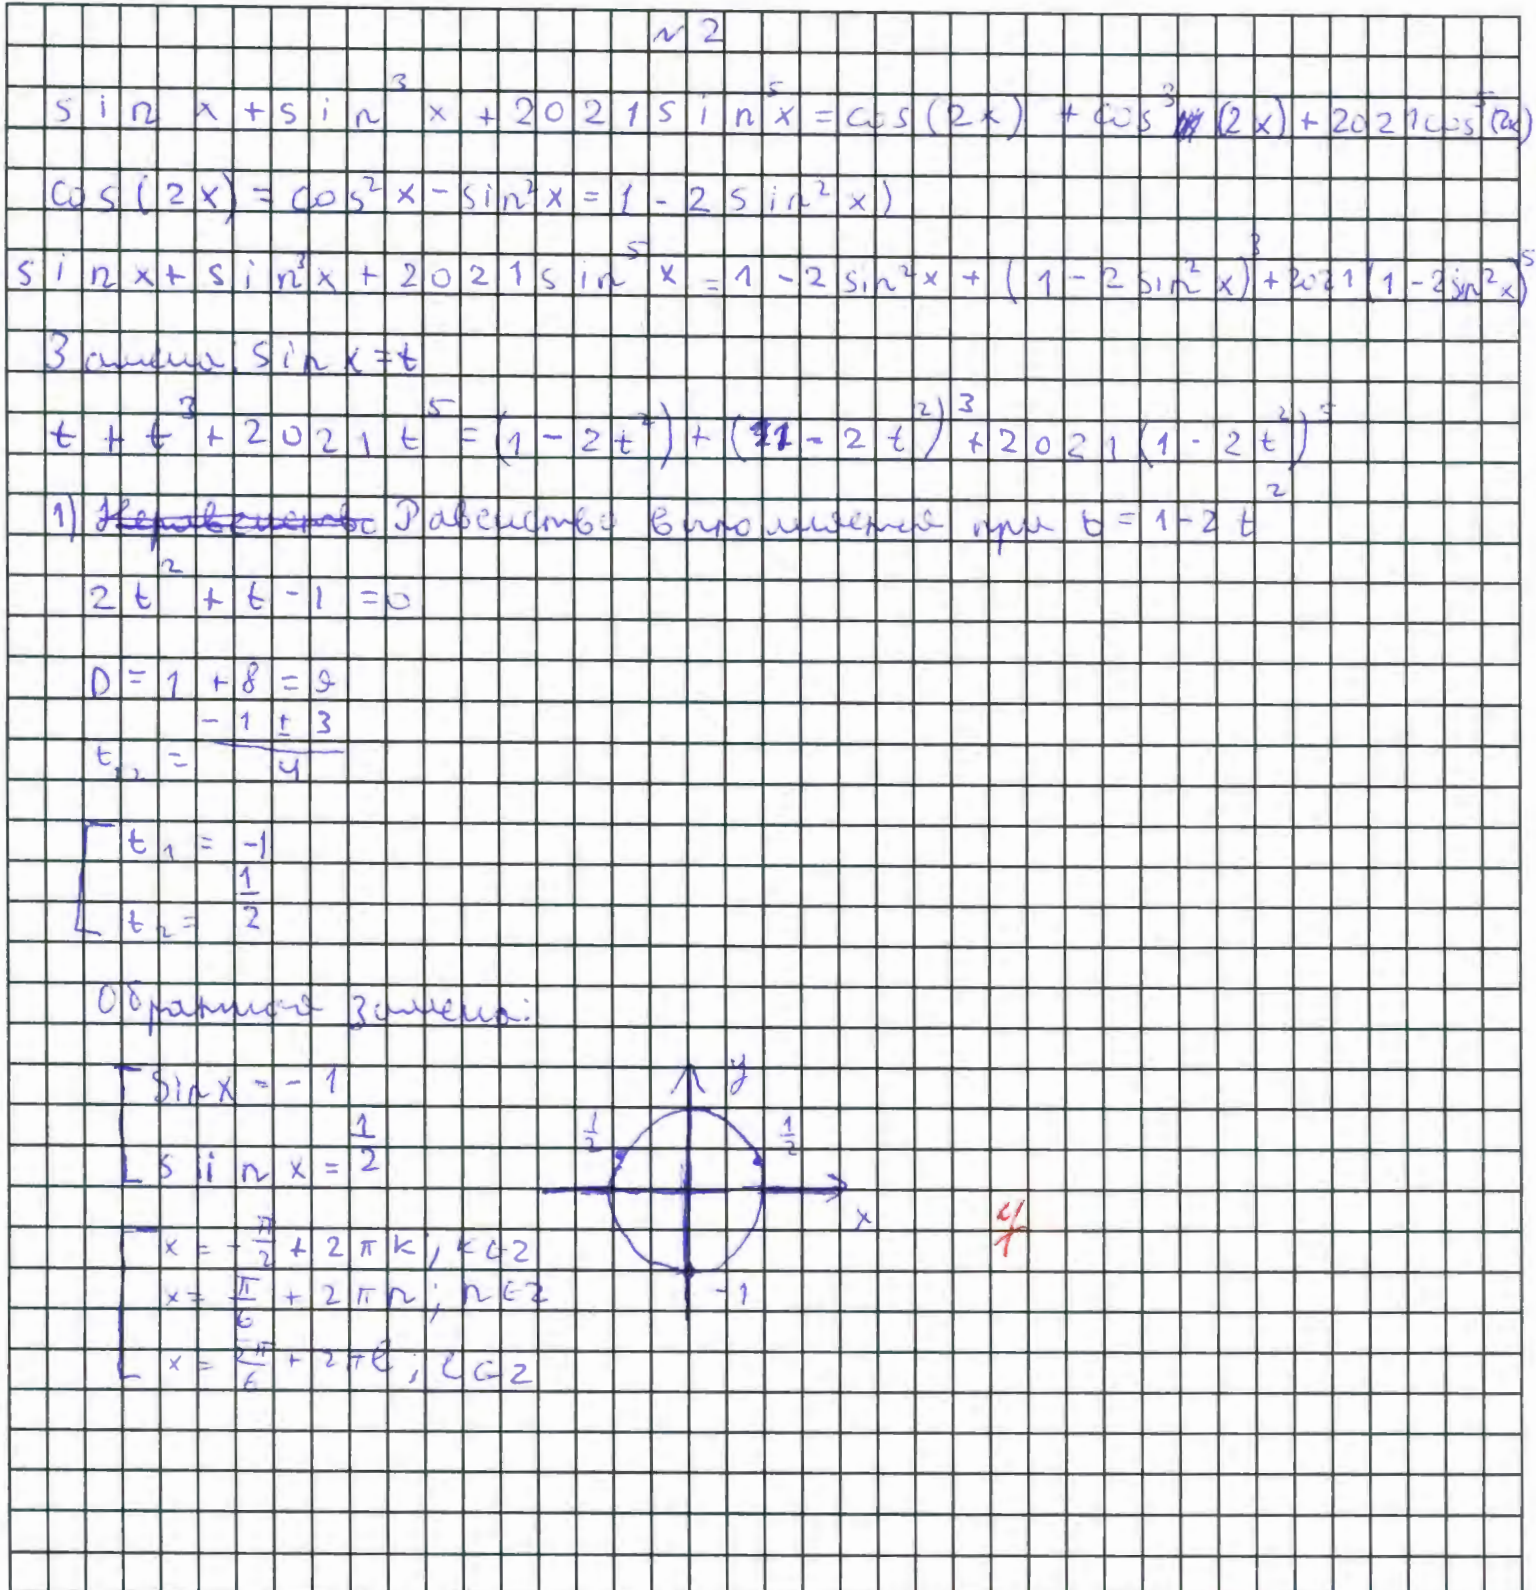 № 2
sin x + sin³ x + 2021 sin⁵ x = cos(2x) + cos³ (2x) + 2021 cos⁵(2x)
cos(2x) = cos² x - sin² x = 1 - 2 sin² x)
sin x + sin³ x + 2021 sin⁵ x = 1 - 2 sin² x + (1 - 2 sin² x)³ + 2021 (1 - 2 sin² x)⁵
Замена: sin x = t
t + t³ + 2021 t⁵ = (1 - 2t²) + (1 - 2t²)³ + 2021 (1 - 2t²)⁵
1) Неравенство Равенство выполняется при t = 1 - 2t²
2t² + t - 1 = 0
D = 1 + 8 = 9
t₁,₂ = (-1 ± 3)/4
[ t₁ = -1
t₂ = 1/2
Обратная замена:
[ sin x = - 1
sin x = 1/2
[ x = -π/2 + 2πk, k ∈ Z
x = π/6 + 2πn; n ∈ Z
x = 5π/6 + 2πl; l ∈ Z
y
1/2 1/2
x
-1